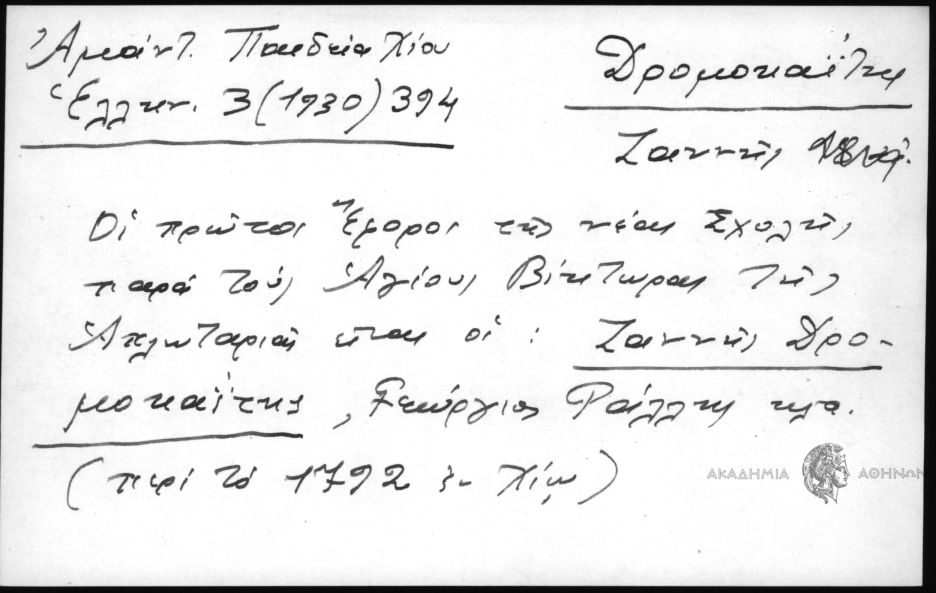 Ἀμάντ. Παιδεία Χίου
Ἑλλην. 3 (1930) 394
Δρομοκαΐτης
Ζαννῆς
Οἱ πρῶτοι Ἔφοροι τῆς νέας Σχολῆς
παρά τούς Ἁγίους Βίκτωρας τῆς
Ἀπλωταριᾶς εἶναι οἱ : Ζαννῆς Δρο-
μοκαΐτης, Γεώργιος Ράλλης κλπ.
(περί τό 1792 ἐν Χίῳ)
ΑΚΑΔΗΜΙΑ ΑΘΗΝΩΝ